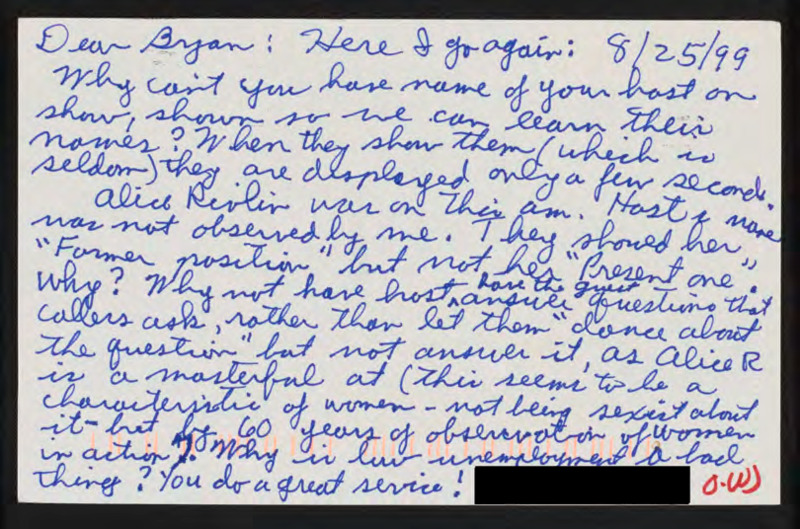 Dear Bryan: Here I go again: 8/25/99
Why can't you have name of your host on
show, shown so we can learn their
names? When they show them (which is
seldom) they are displayed only a few seconds.
Alice Rivlin was on this am. Host's name
was not observed by me. They showed her
"Former position" but not her "Present one".
Why? Why not have host, have the guest answer questions that
callers ask, rather than let them "dance about
the question" but not answer it, as Alice R
is a masterful at (this seems to be a
characteristic of women - not being sexist about
it - but by 60 years of observation of women
in action). Why is low unemployment a bad
thing? You do a great service!